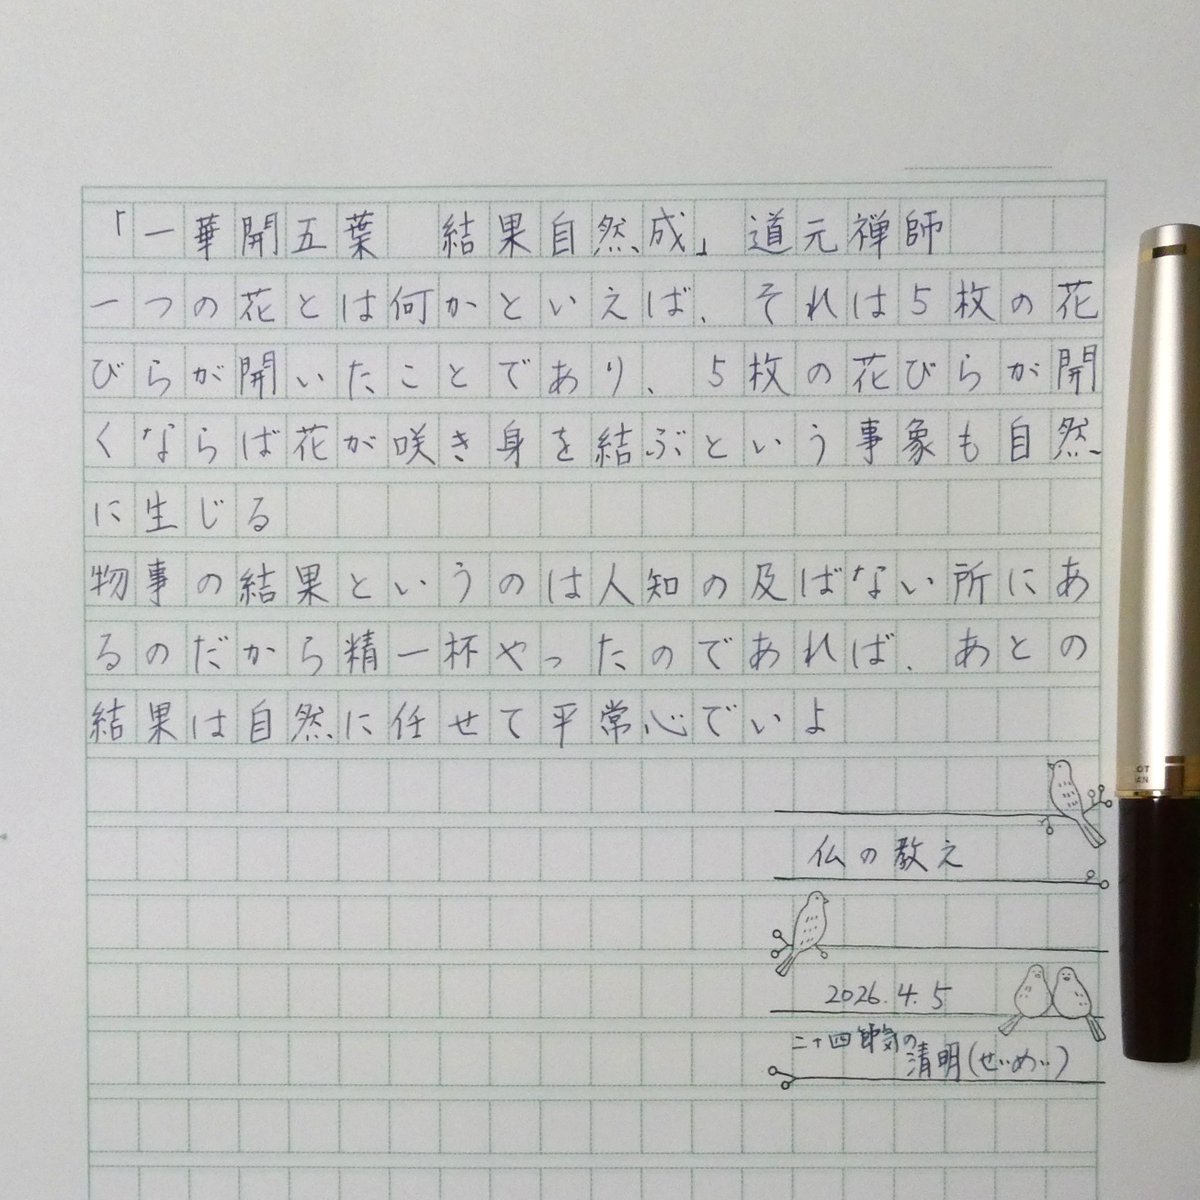 「一華開五葉　結果自然成」道元禅師
一つの花とは何かといえば、それは5枚の花
びらが開いたことであり、5枚の花びらが開
くならば花が咲き身を結ぶという事象も自然
に生じる
物事の結果というのは人知の及ばない所にあ
るのだから精一杯やったのであれば、あとの
結果は自然に任せて平常心でいよ
仏の教え
2026.4.5
二十四節気の
清明(せいめい)